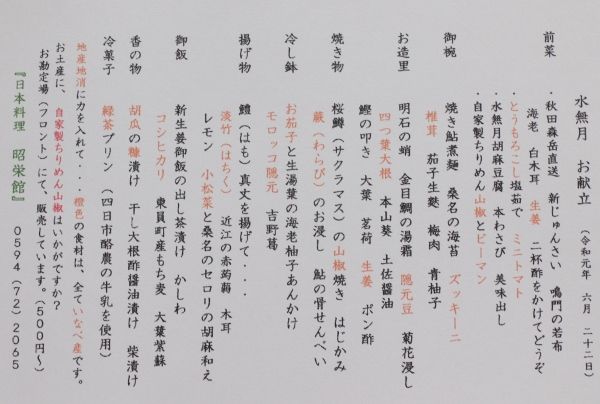 水無月　お献立　（令和元年　六月　二十二日）
前菜
・秋田森岳直送　新じゅんさい　鳴門の若布
海老　白木耳　生姜　二杯酢をかけてどうぞ
・とうもろこし塩茹で　ミニトマト
・水無月胡麻豆腐　本わさび　美味出し
・自家製ちりめん山椒とピーマン
御椀
焼き鮎煮麺　桑名の海苔　ズッキーニ
椎茸　茄子生麩　梅肉　青柚子
お造里
明石の蛸　金目鯛の湯霜　隠元豆　菊花浸し
四つ葉大根　本山葵　土佐醤油
鰹の叩き　大葉　茗荷　生姜　ポン酢
焼き物
桜鱒（サクラマス）の山椒焼き　はじかみ
蕨（わらび）のお浸し　鮎の骨せんべい
冷し鉢
お茄子と生湯葉の海老柚子あんかけ
モロッコ隠元　吉野葛
揚げ物
鱧（はも）真丈を揚げて・・・
淡竹（はちく）　近江の赤蒟蒻　木耳
レモン　小松菜と桑名のセロリの胡麻和え
御飯
新生姜御飯の出し茶漬け　かしわ
コシヒカリ　東員町産もち麦　大葉紫蘇
香の物
胡瓜の糠漬け　干し大根酢醤油漬け　柴漬け
冷菓子
緑茶プリン　（四日市酪農の牛乳を使用）
地産地消に力を入れて・・・橙色の食材は、全ていなべ産です。
お土産に、自家製ちりめん山椒はいかがですか？
お勘定場（フロント）にて、販売しています。（５００円～）
『日本料理　昭栄館』　０５９４（７２）２０６５